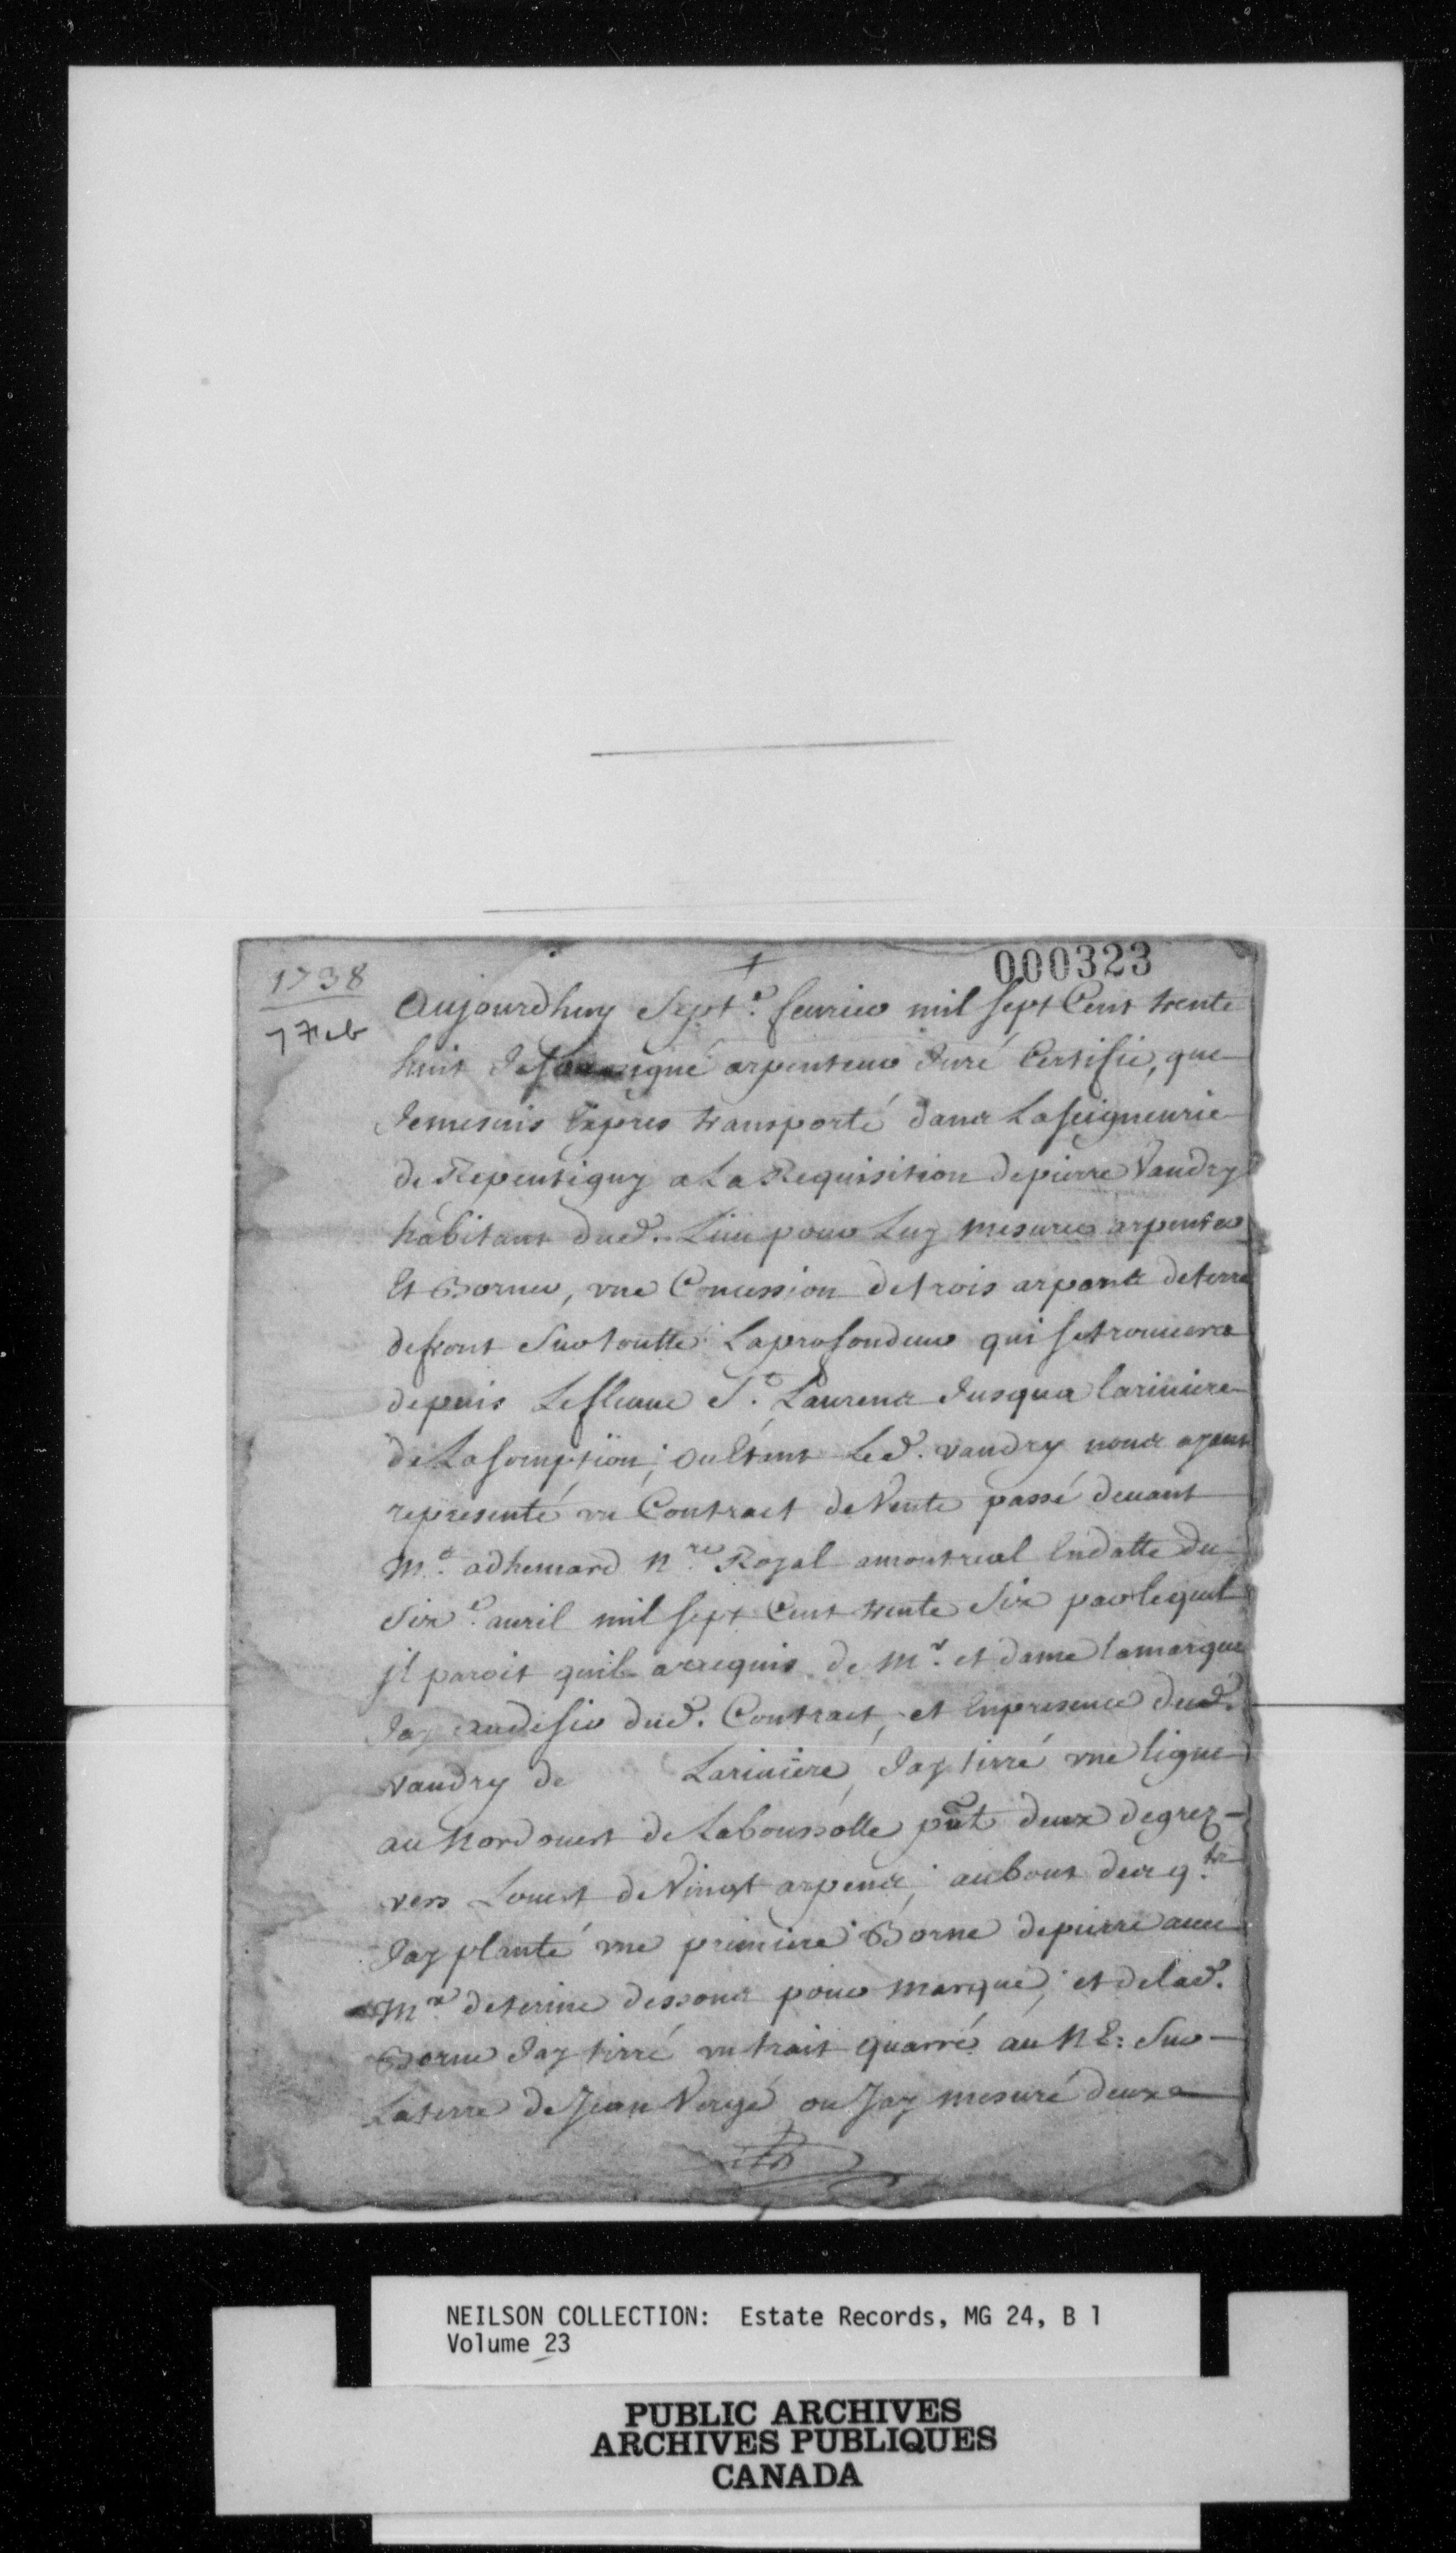 000323
1738
7 Feb
Aujourdhuy Sept.e feurier mil sept Cent trente
huit Je soussigné arpenteur Juré Certifie, que
Jemesuis Expres transporté dans Laseigneurie
de Repentigny a La Requisition depierre Vaudry
habitant dud. Lieu pour Luy mesurer arpenter
Et Borner, vne Concession detrois arpents deterre
defront Sur toutte Laprofondeur qui setrouuera
depuis Lefleuue St. Laurens Jusqua lariuiere
de Lasomption; ou Etant Led. vaudry nous ayant
representé vn Contract de Vente passé deuant
M.e adhemard N.re Royal amontreal Endatte du
Six.e auril mil sept Cent trente Six par lequel
jl paroit quil a acquis de M.r et dame lamarque
Jay audesir dud. Contract, et Enpresence dud.
vaudry de Lariuiere, Jay tirré vne ligne
au Nordouest de Laboussolle deux degrez
vers Louest de Vingt arpens; aubout
Jay planté vne premiere Borne depierre auec
deterine dessous pour marque; et delad.
Borne Jay tirré vn trait quarré au N E: Sur
Laterre de Jean Vergé ou Jay mesuré deux
NEILSON COLLECTION: Estate Records, MG 24, B 1
Volume 23
PUBLIC ARCHIVES
ARCHIVES PUBLIQUES
CANADA